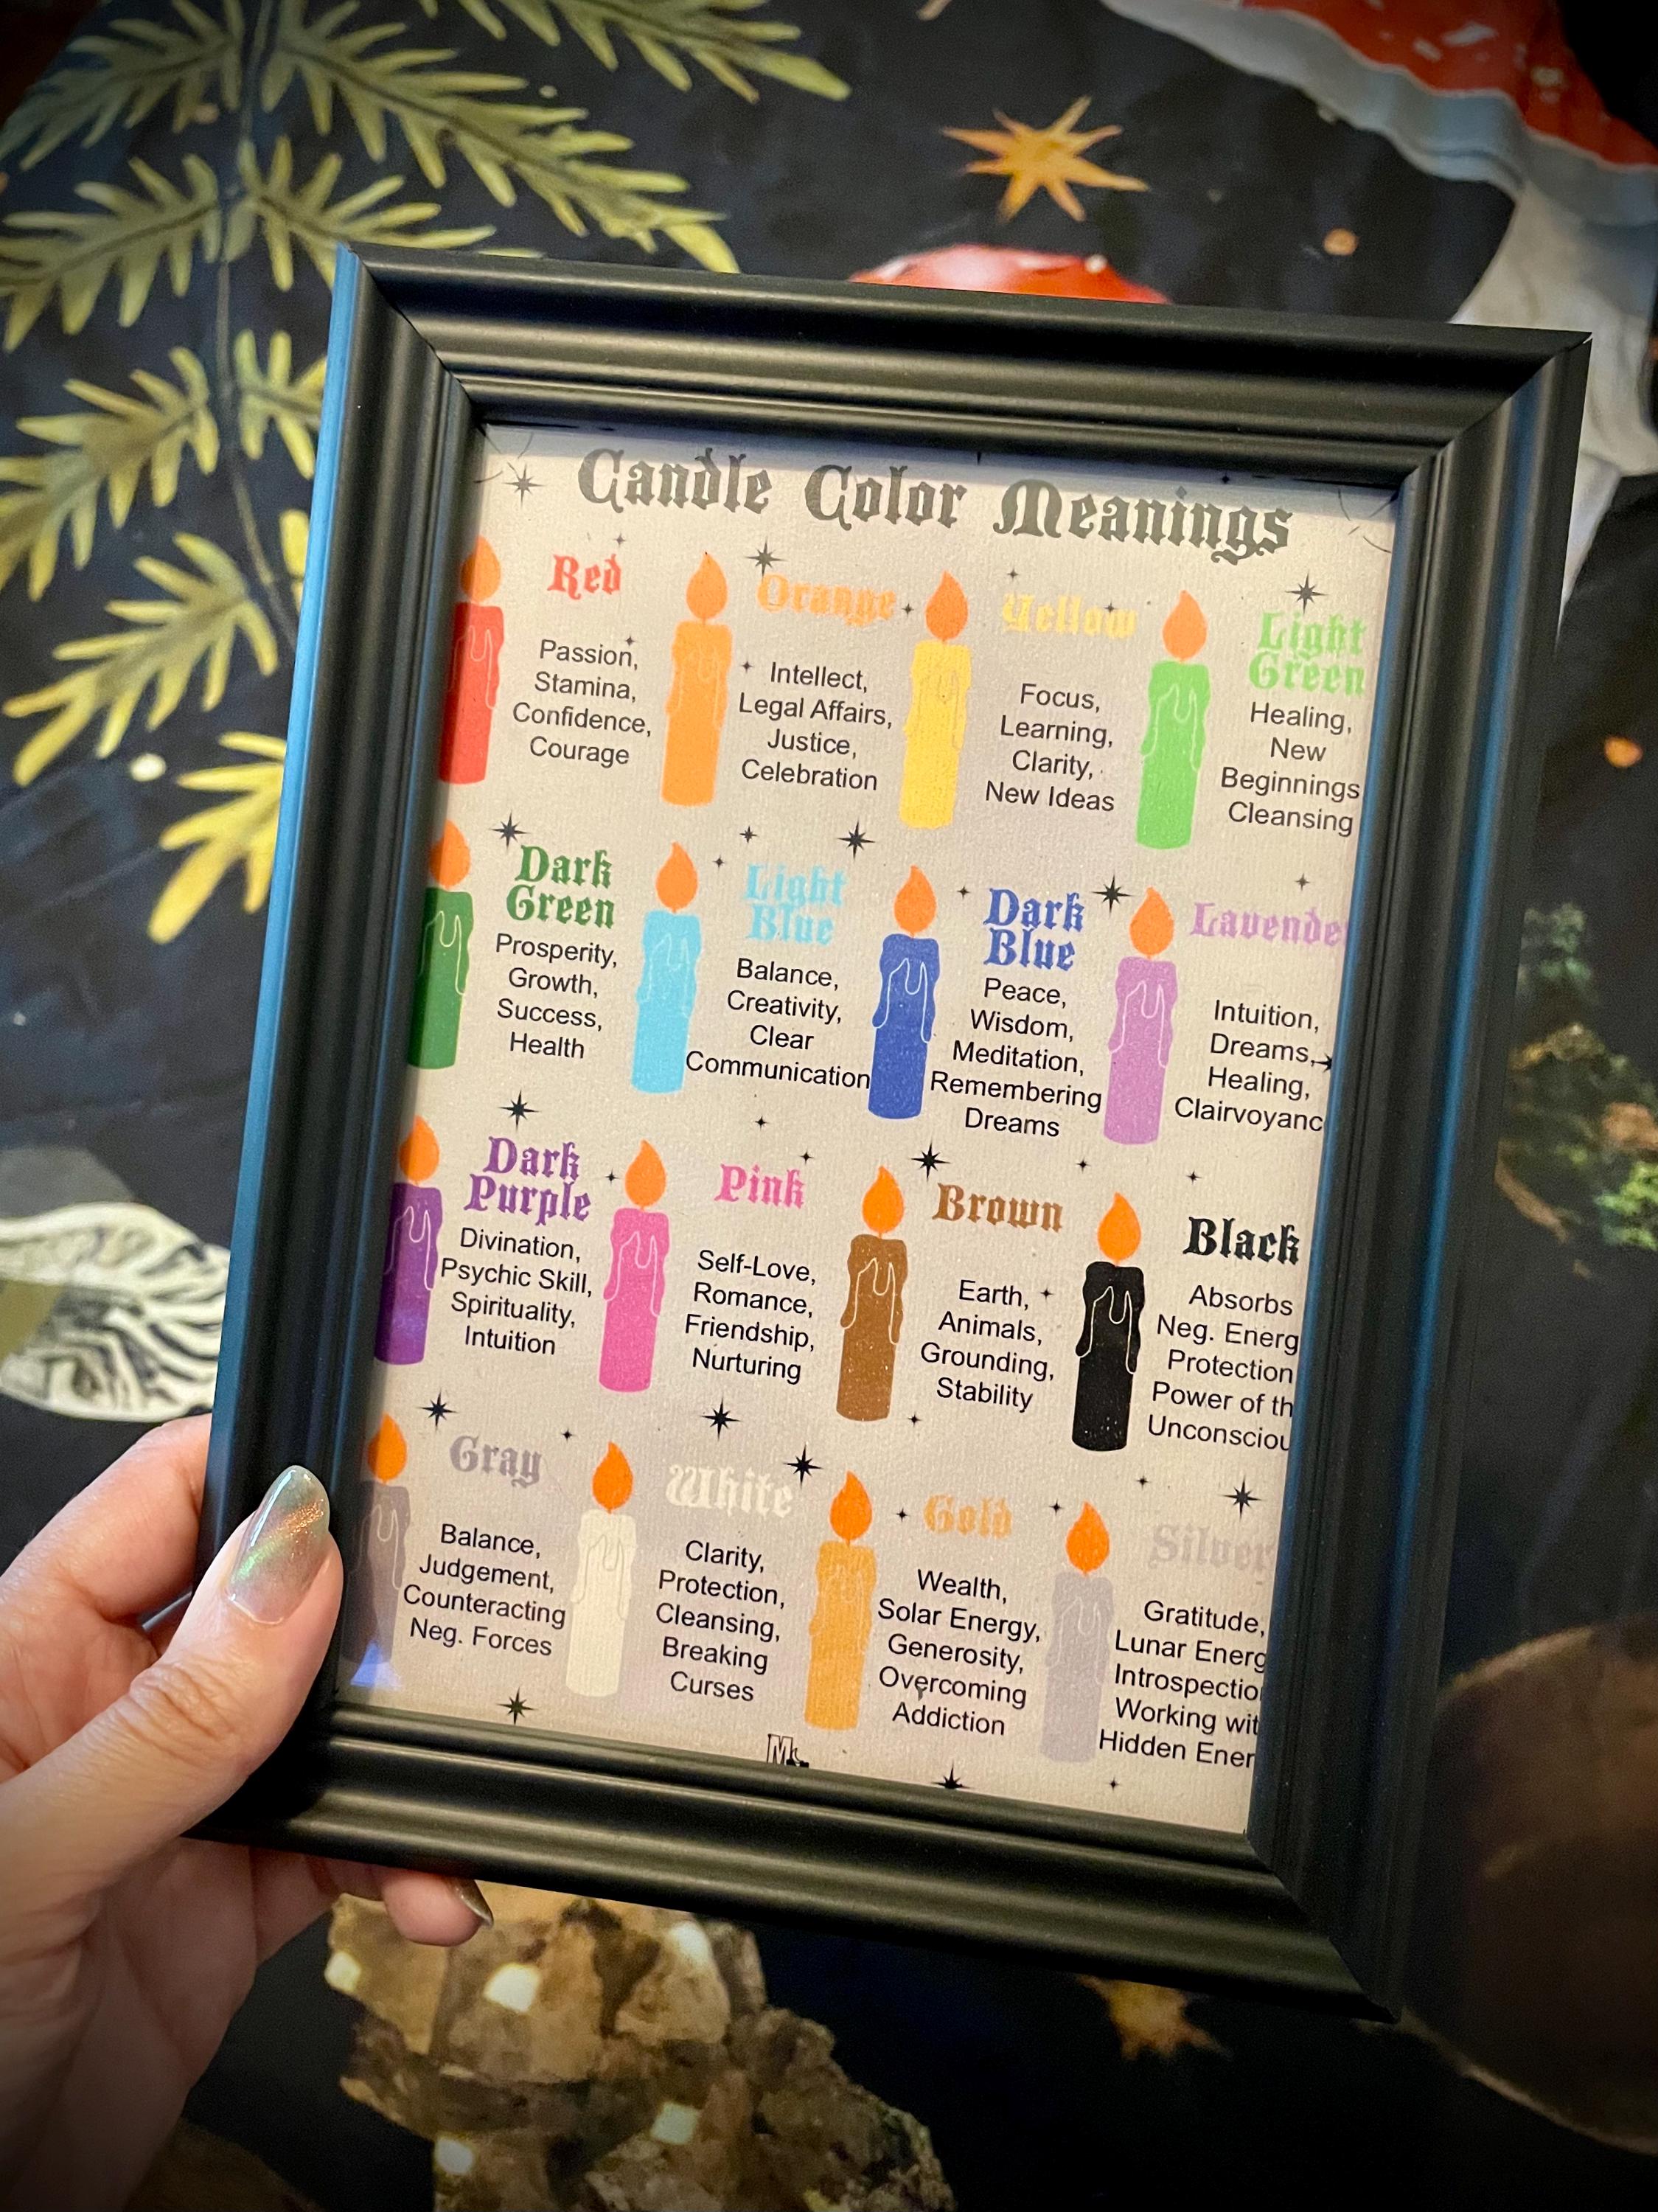 Candle Color Meanings
Red
Passion,
Stamina,
Confidence,
Courage
Orange
Intellect,
Legal Affairs,
Justice,
Celebration
Yellow
Focus,
Learning,
Clarity,
New Ideas
Light
Green
Healing,
New
Beginnings
Cleansing
Dark
Green
Prosperity,
Growth,
Success,
Health
Light
Blue
Balance,
Creativity,
Clear
Communication
Dark
Blue
Peace,
Wisdom,
Meditation,
Remembering
Dreams
Lavende
Intuition,
Dreams,
Healing,
Clairvoyanc
Dark
Purple
Divination,
Psychic Skill,
Spirituality,
Intuition
Pink
Self-Love,
Romance,
Friendship,
Nurturing
Brown
Earth,
Animals,
Grounding,
Stability
Black
Absorbs
Neg. Energ
Protection
Power of th
Unconsciou
Gray
Balance,
Judgement,
Counteracting
Neg. Forces
White
Clarity,
Protection,
Cleansing,
Breaking
Curses
Gold
Wealth,
Solar Energy,
Generosity,
Overcoming
Addiction
Silver
Gratitude,
Lunar Energ
Introspectio
Working wit
Hidden Ener